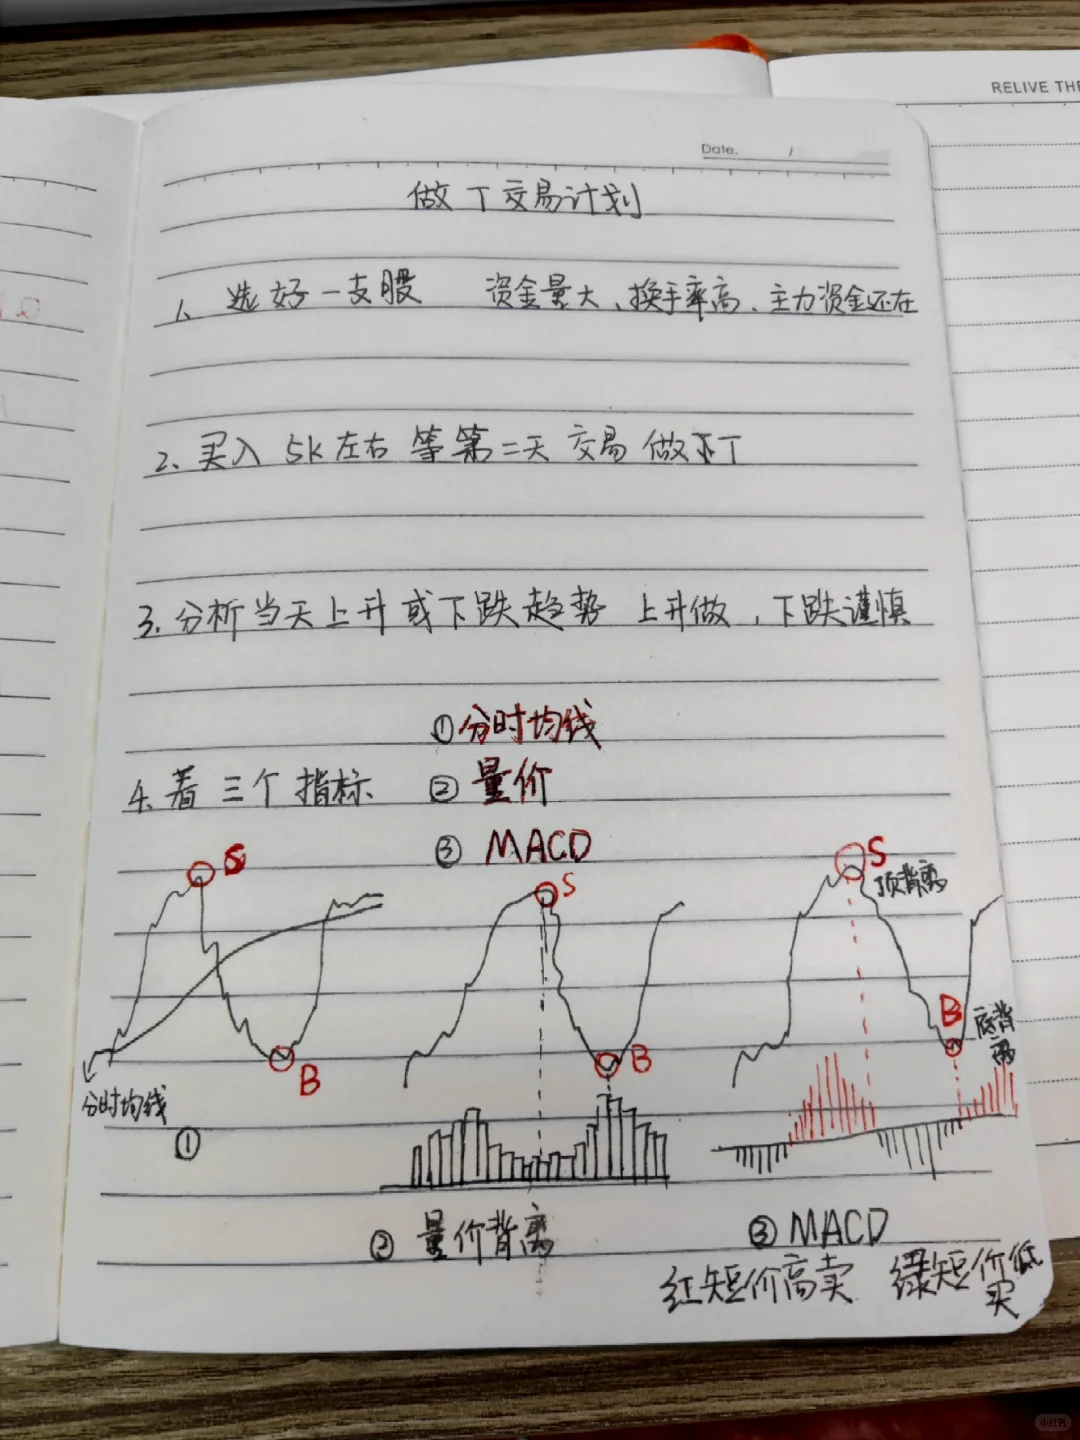 RELIVE THE
Date. /
做T交易计划
1、选好一支股 资金量大、换手率高、主力资金还在
2、买入5K左右 等第二天交易做T
3、分析当天上升或下跌趋势 上升做，下跌谨慎
①分时均线
4、看三个指标 ②量价
③MACD
S
S
S
顶背离
B
B
B
底背离
分时均线
①
②量价背离
③MACD
红短价高卖 绿短价低买
小红书